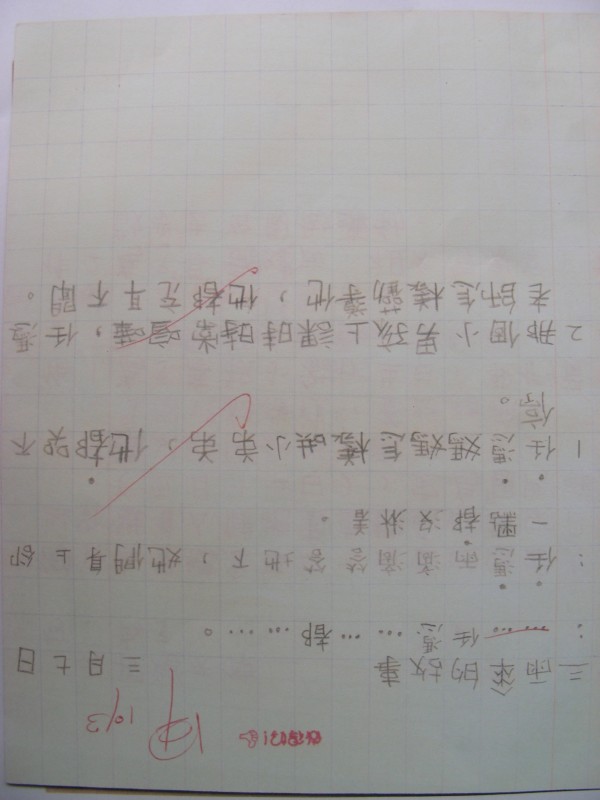 10/3
三 雨傘的故事 三月七日
：……任憑……都……。
：任憑雨滴滴答答地下，她們身上卻
一點都沒淋着。
1 任憑媽媽怎樣哄小弟弟，他都哭不
停。
2 那個小男孩上課時時常喧嘩，任憑
老師怎樣勸導他，他都充耳不聞。